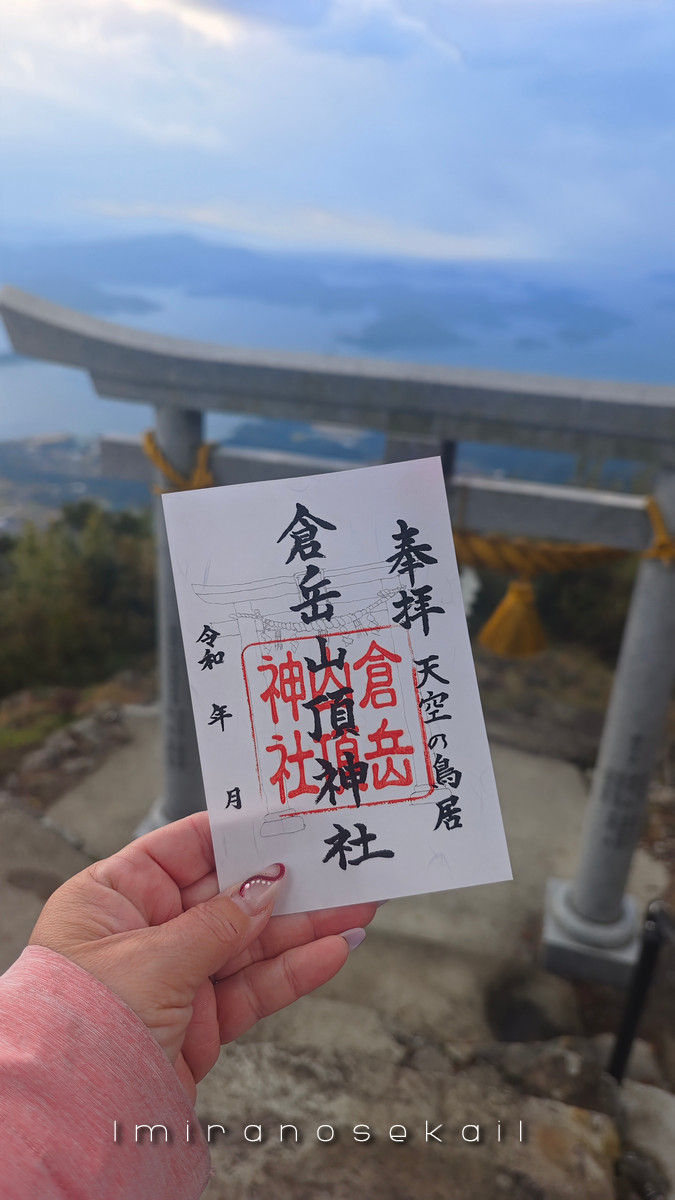 奉拝 天空の鳥居
倉岳山頂神社
倉岳
山頂
神社
令和 年 月
lmiranosekail